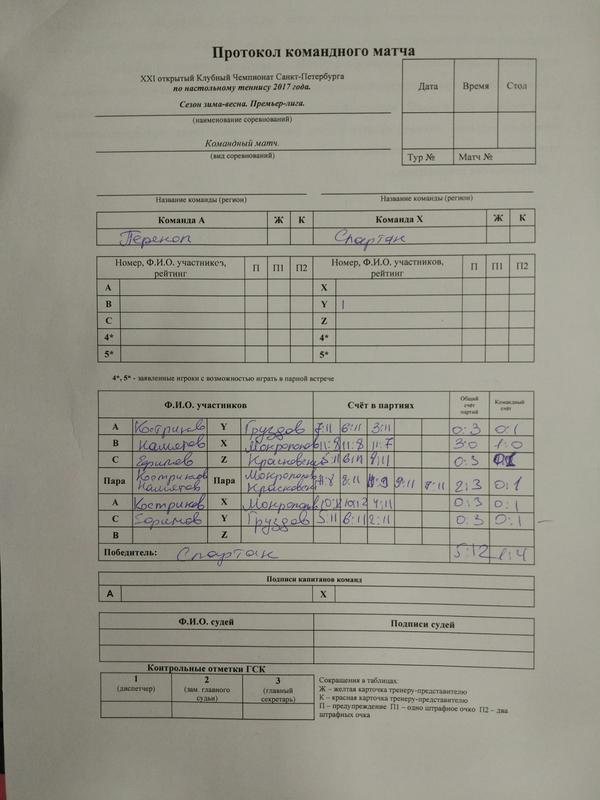 Протокол командного матча
XXI открытый Клубный Чемпионат Санкт-Петербурга
по настольному теннису 2017 года.
Сезон зима-весна. Премьер-лига.
(наименование соревнований)
Командный матч.
(вид соревнований)
Дата Время Стол
Тур № Матч №
Название команды (регион) Название команды (регион)
Команда А Ж К Команда Х Ж К
Перекоп Спартак
Номер, Ф.И.О. участников, рейтинг П П1 П2 Номер, Ф.И.О. участников, рейтинг П П1 П2
А X
В Y
С Z
4* 4*
5* 5*
4*, 5* - заявленные игроки с возможностью играть в парной встрече
Ф.И.О. участников Счёт в партиях Общий счёт партий Командный счёт
А Костриков Y Груздов 7:11 6:11 3:11 0:3 0:1
В Намятов X 11:8 11:8 11:7 3:0 1:0
С Z 6:11 0:3
Пара Костриков Намятов Пара 8:11 9:11 2:3 0:1
А Костриков X 10:12 4:11 0:3 0:1
С Y Груздов 5:11 6:11 2:11 0:3 0:1
В Z
Победитель: Спартак 5:12 1:4
Подписи капитанов команд
А X
Ф.И.О. судей Подписи судей
Контрольные отметки ГСК
1 2 3
(диспетчер) (зам. главного судьи) (главный секретарь)
Сокращения в таблицах:
Ж – желтая карточка тренеру-представителю
К – красная карточка тренеру-представителю
П – предупреждение П1 – одно штрафное очко П2 – два
штрафных очка